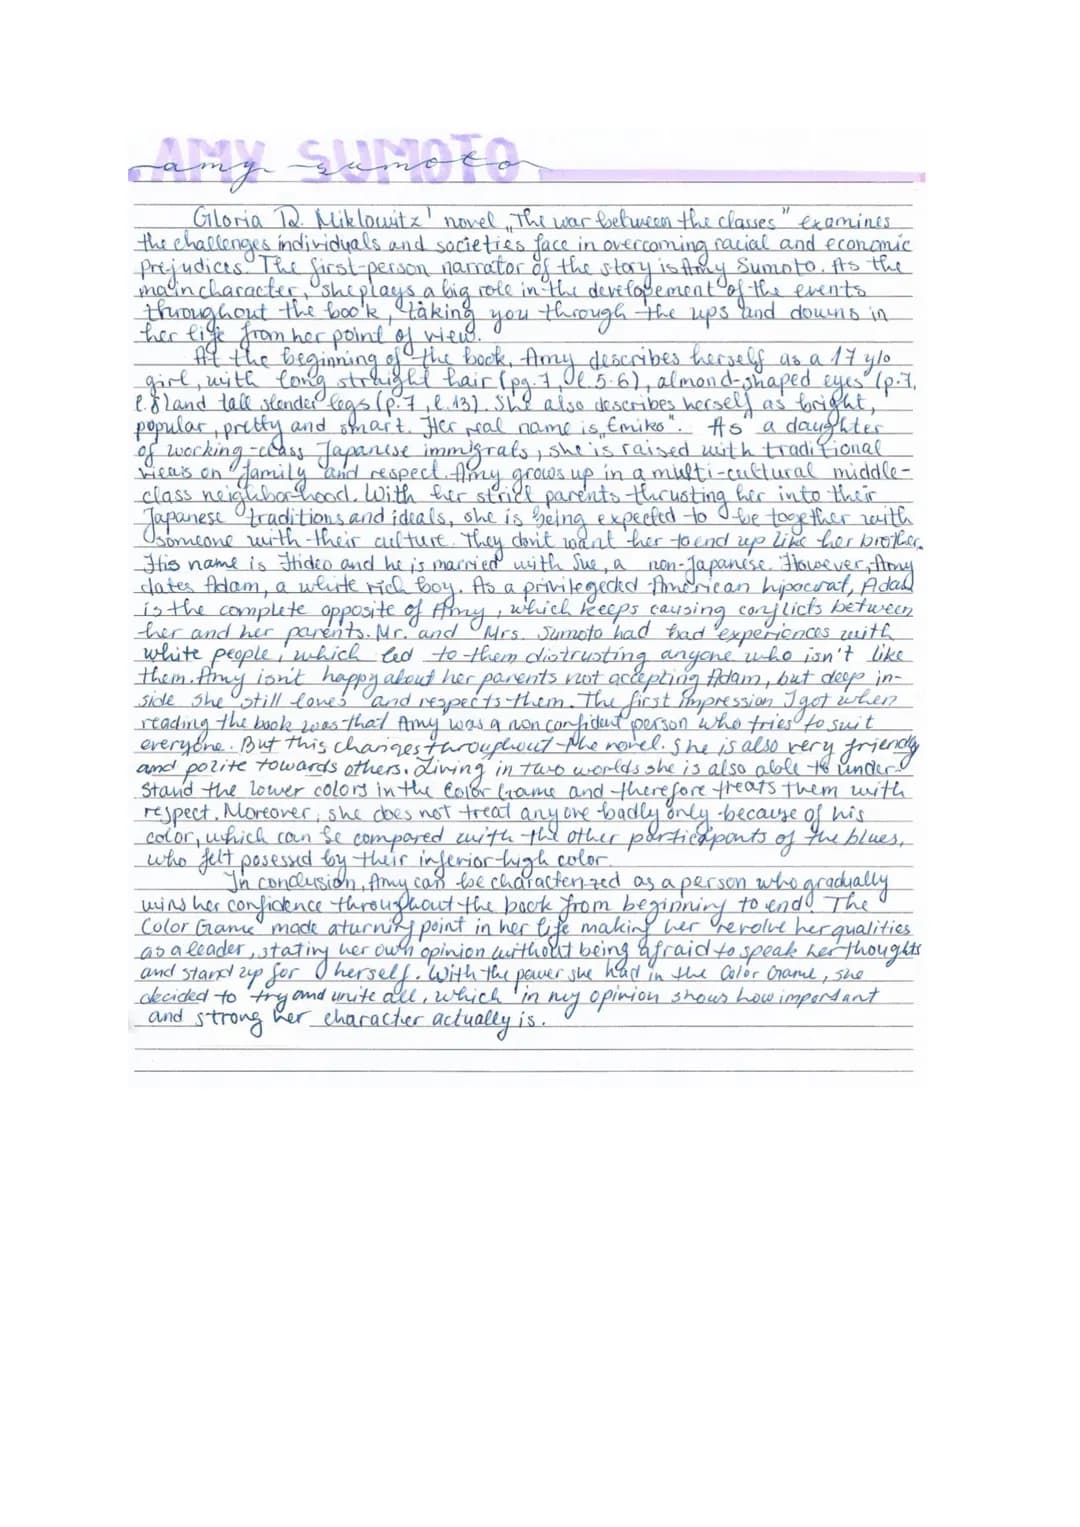 AMY SUMOTO
amy sumoto
Gloria D. Miklowitz' novel „The war between the classes" examines
the challenges individuals and societies face in overcoming racial and economic
prejudices. The first-person narrator of the story is Amy Sumoto. As the
main character, she plays a big role in the developement of the events
throughout the book, taking you through the ups and downs in
her life from her point of view.
At the beginning of the book, Amy describes herself as a 17 y/o
girl, with long straight hair (pg. 7, l. 5-6), almond-shaped eyes (p. 7,
l. 8) and tall slender legs (p. 7, l. 13). She also describes herself as bright,
popular, pretty and smart. Her real name is „Emiko". As a daughter
of working-class Japanese immigrats, she is raised with traditional
views on family and respect. Amy grows up in a multi-cultural middle-
class neighborhood. With her strict parents thrusting her into their
Japanese traditions and ideals, she is being expected to be together with
someone with their culture. They don't want her to end up like her brother.
His name is Hideo and he is married with Sue, a non-Japanese. However, Amy
dates Adam, a white rich boy. As a privilegeded American hipocrat, Adam
is the complete opposite of Amy, which keeps causing conflicts between
her and her parents. Mr. and Mrs. Sumoto had bad experiences with
white people, which led to them distrusting anyone who isn't like
them. Amy isn't happy about her parents not accepting Adam, but deep in-
side she still loves and respects them. The first impression I got when
reading the book was that Amy was a non confident person who tries to suit
everyone. But this changes throughout the novel. She is also very friendly
and polite towards others. Living in two worlds she is also able to under-
stand the lower colors in the Color Game and therefore treats them with
respect. Moreover, she does not treat anyone badly only because of his
color, which can be compared with the other participants of the blues,
who felt posessed by their inferior high color.
In conclusion, Amy can be characterized as a person who gradually
wins her confidence throughout the book from beginning to end. The
Color Game made a turning point in her life making her revolve her qualities
as a leader, stating her own opinion without being afraid to speak her thoughts
and stand up for herself. With the power she had in the Color Game, she
decided to try and unite all, which in my opinion shows how important
and strong her character actually is.